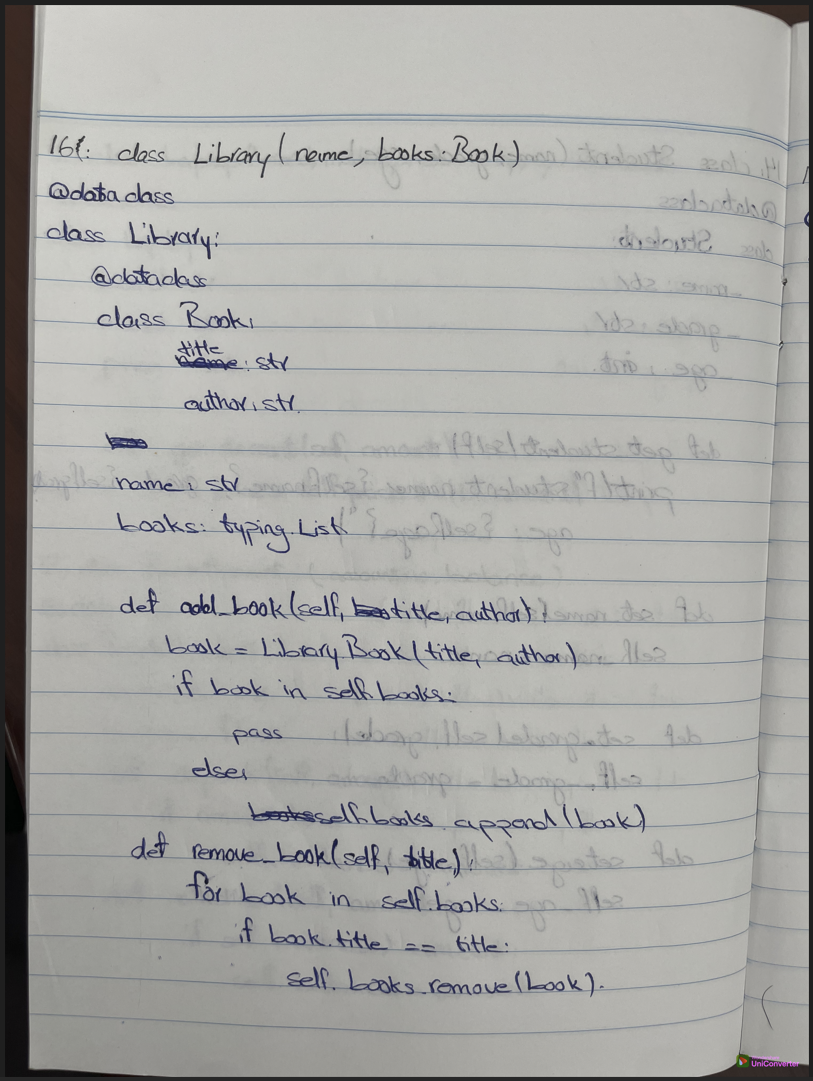 161: class Library(name, books: Book)
@dataclass
class Library:
@dataclass
class Book:
title
name: str
author: str
name: str
books: typing.List
def add_book(self, title, author):
book = Library.Book(title, author)
if book in self.books:
pass
else:
self.books.append(book)
def remove_book(self, title):
for book in self.books:
if book.title == title:
self.books.remove(book).
UniConverter